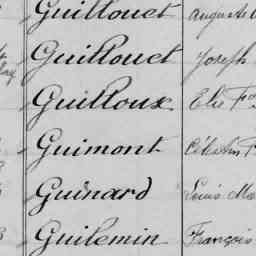 Guillouet Auguste
Guillouet Joseph
Guilloux Elie Fois
Guimont Célestin
Guinard Louis Ma
Guilemin François